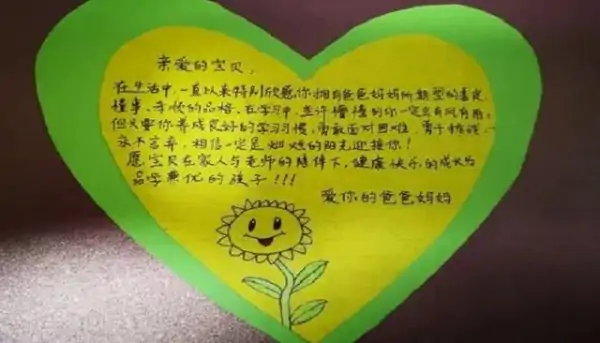 亲爱的宝贝,
在生活中,一直以来特别欣慰你拥有爸爸妈妈所期望的善良、
懂事、孝敬的品格。在学习中,些许懵懂的你一定会有
但只要你养成良好的学习习惯,勇敢面对困难,勇于挑战,
永不言弃,相信一定是灿烂的阳光迎接你!
愿宝贝在家人与老师的陪伴下,健康快乐的成长为
品学兼优的孩子!!!
爱你的爸爸妈妈